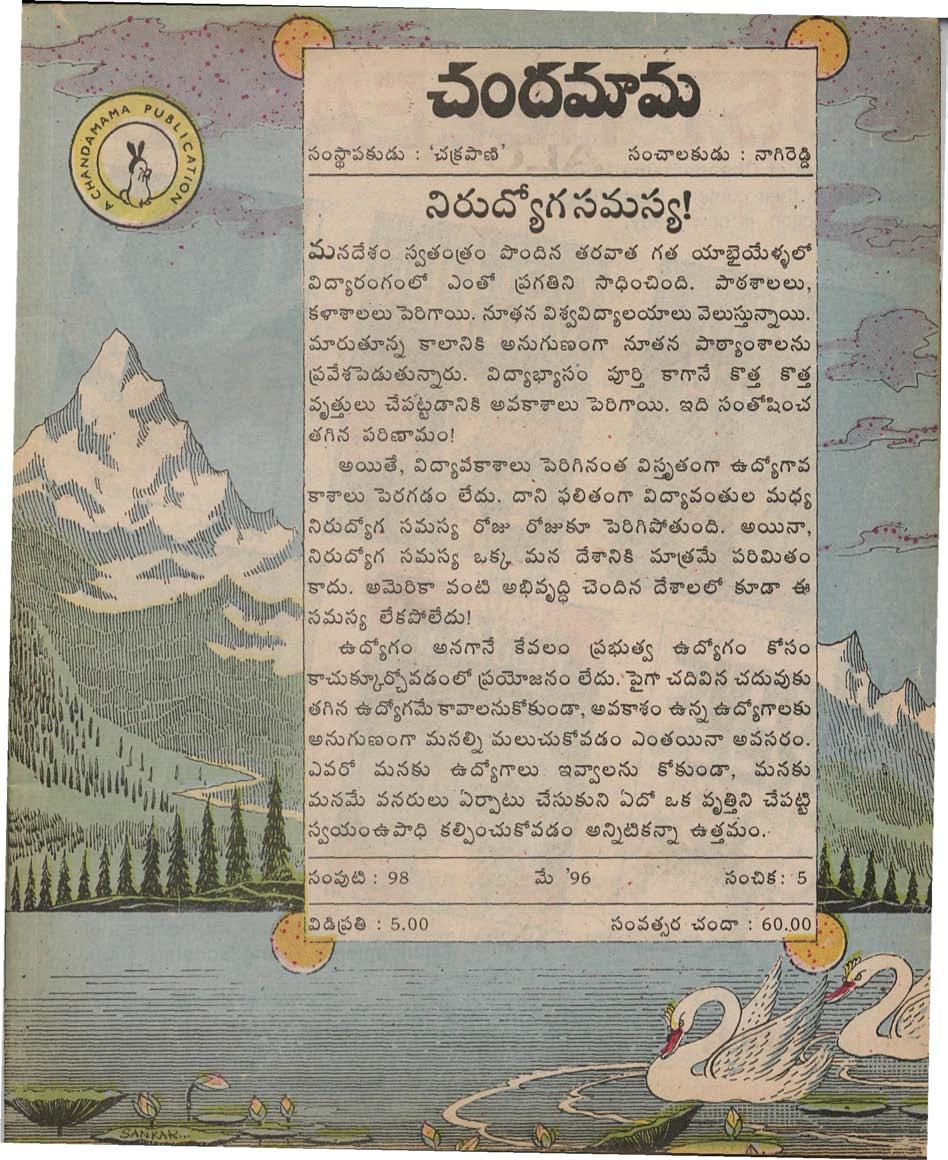 చందమామ
A CHANDAMAMA PUBLICATION
సంస్థాపకుడు : 'చక్రపాణి' సంచాలకుడు : నాగిరెడ్డి
నిరుద్యోగ సమస్య!
మనదేశం స్వతంత్రం పొందిన తరవాత గత యాభైయేళ్ళలో
విద్యారంగంలో ఎంతో ప్రగతిని సాధించింది. పాఠశాలలు,
కళాశాలలు పెరిగాయి. నూతన విశ్వవిద్యాలయాలు వెలుస్తున్నాయి.
మారుతూన్న కాలానికి అనుగుణంగా నూతన పాఠ్యాంశాలను
ప్రవేశపెడుతున్నారు. విద్యాభ్యాసం పూర్తి కాగానే కొత్త కొత్త
వృత్తులు చేపట్టడానికి అవకాశాలు పెరిగాయి. ఇది సంతోషించ
తగిన పరిణామం!
అయితే, విద్యావకాశాలు పెరిగినంత విస్తృతంగా ఉద్యోగావ
కాశాలు పెరగడం లేదు. దాని ఫలితంగా విద్యావంతుల మధ్య
నిరుద్యోగ సమస్య రోజు రోజుకూ పెరిగిపోతుంది. అయినా,
నిరుద్యోగ సమస్య ఒక్క మన దేశానికి మాత్రమే పరిమితం
కాదు. అమెరికా వంటి అభివృద్ధి చెందిన దేశాలలో కూడా ఈ
సమస్య లేకపోలేదు!
ఉద్యోగం అనగానే కేవలం ప్రభుత్వ ఉద్యోగం కోసం
కాచుక్కూర్చోవడంలో ప్రయోజనం లేదు. పైగా చదివిన చదువుకు
తగిన ఉద్యోగమే కావాలనుకోకుండా, అవకాశం ఉన్న ఉద్యోగాలకు
అనుగుణంగా మనల్ని మలుచుకోవడం ఎంతయినా అవసరం.
ఎవరో మనకు ఉద్యోగాలు ఇవ్వాలను కోకుండా, మనకు
మనమే వనరులు ఏర్పాటు చేసుకుని ఏదో ఒక వృత్తిని చేపట్టి
స్వయంఉపాధి కల్పించుకోవడం అన్నిటికన్నా ఉత్తమం.
సంపుటి : 98 మే '96 సంచిక : 5
విడిప్రతి : 5.00 సంవత్సర చందా : 60.00
SANKAR...